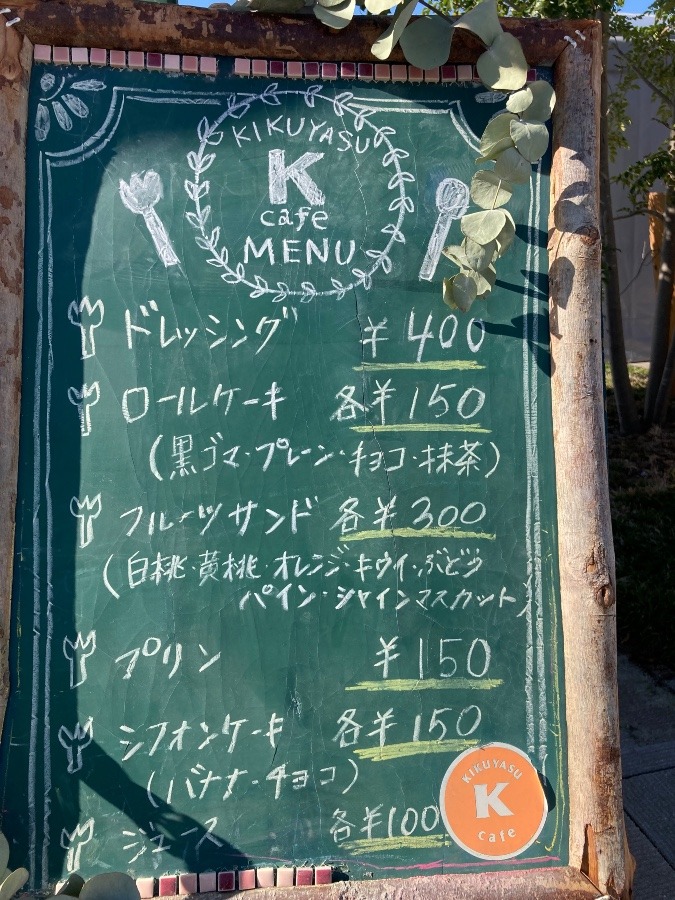 KIKUYASU
K
cafe
MENU
ドレッシング ¥400
ロールケーキ 各¥150
(黒ゴマ・プレーン・チョコ・抹茶)
フルーツサンド 各¥300
(白桃・黄桃・オレンジ・キウイ・ぶどう
パイン・シャインマスカット)
プリン ¥150
シフォンケーキ 各¥150
(バナナ・チョコ)
ジュース 各¥100
KIKUYASU
K
cafe